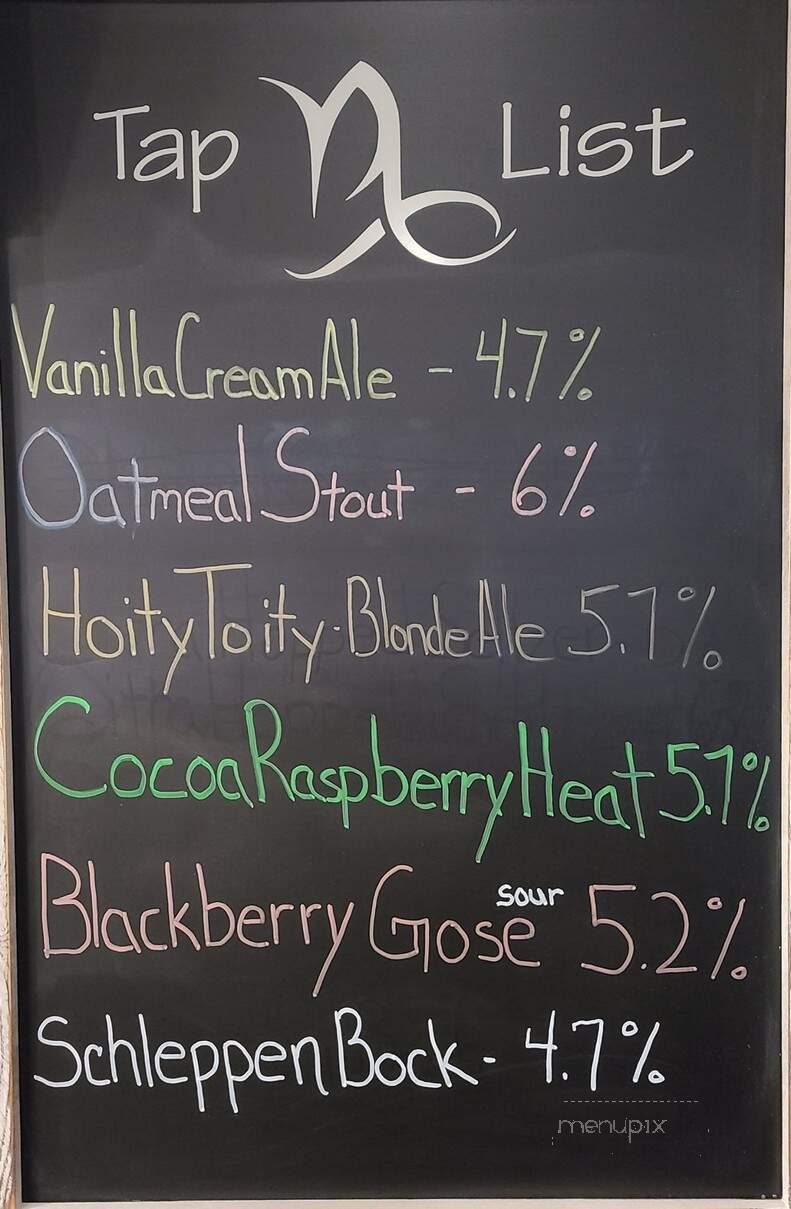 Tap List
Vanilla Cream Ale - 4.7%
Oatmeal Stout - 6%
Hoity Toity - Blonde Ale 5.1%
Cocoa Raspberry Heat 5.1%
Blackberry Gose sour 5.2%
Schleppen Bock - 4.7%
menupix